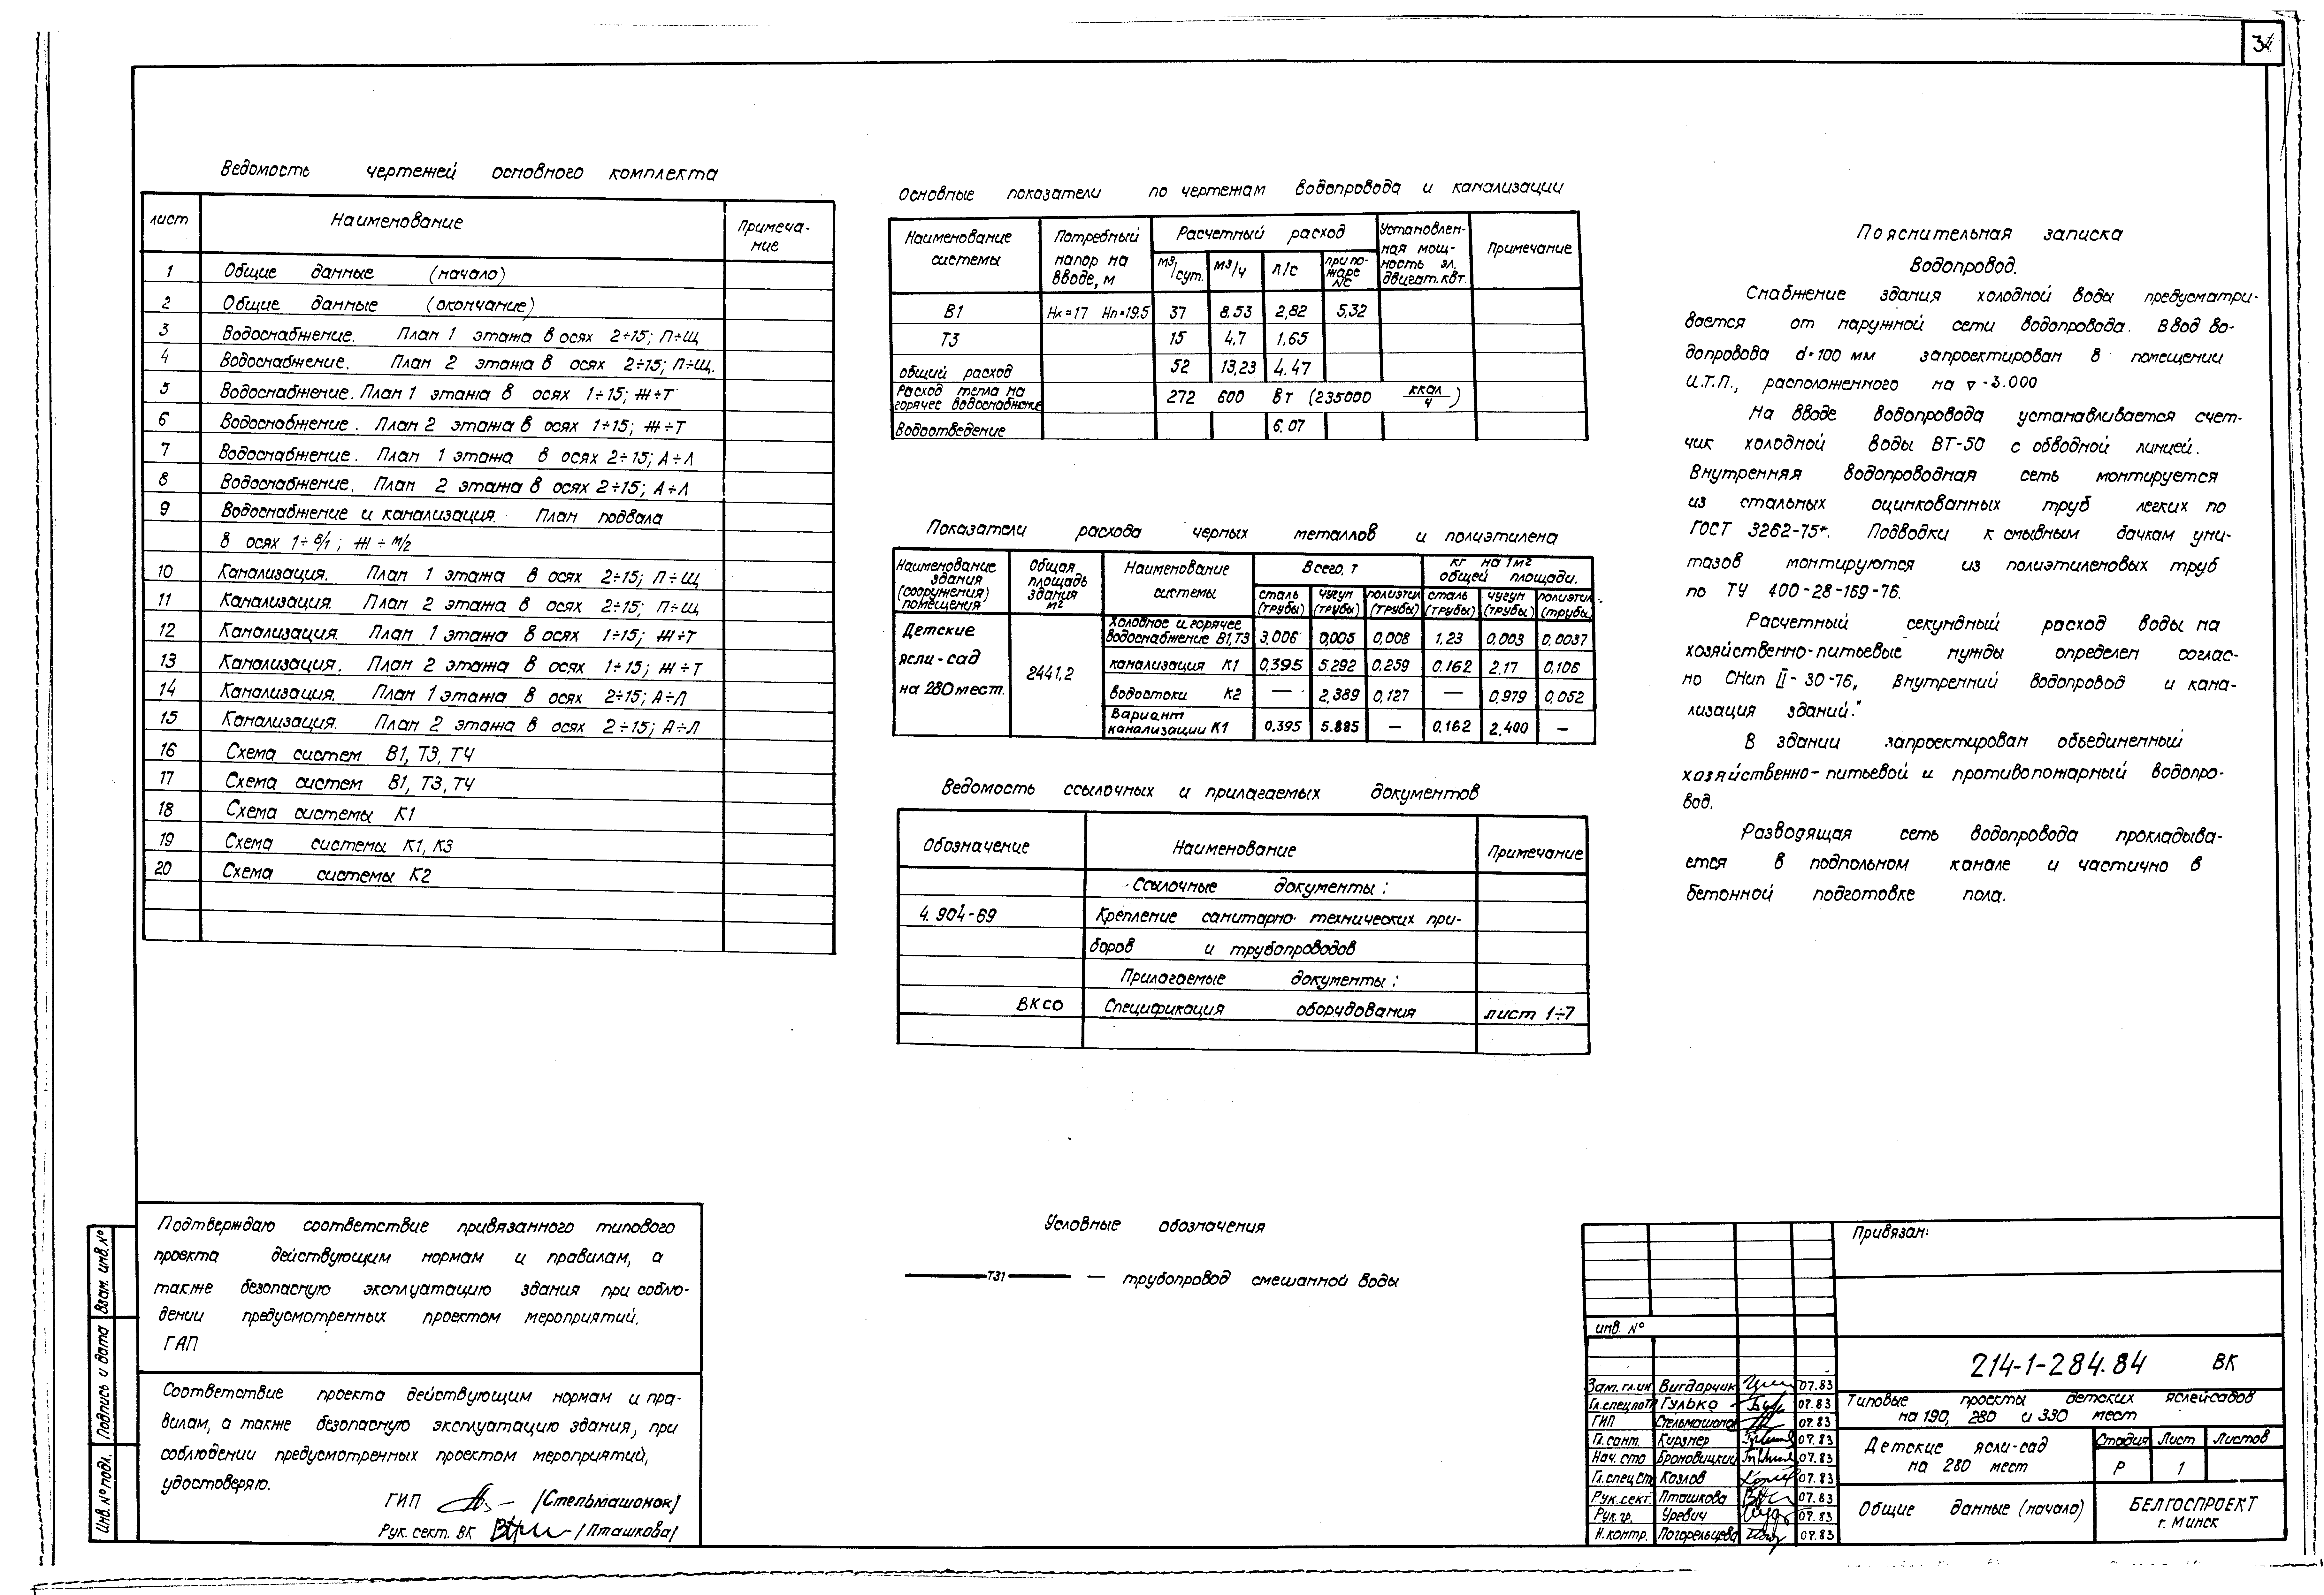 34
Ведомость чертежей основного комплекта
лист Наименование Примеча-
ние
1 Общие данные (начало)
2 Общие данные (окончание)
3 Водоснабжение. План 1 этажа в осях 2÷15; П÷Щ
4 Водоснабжение. План 2 этажа в осях 2÷15; П÷Щ.
5 Водоснабжение. План 1 этажа в осях 1÷15; Ж÷Т
6 Водоснабжение. План 2 этажа в осях 1÷15; Ж÷Т
7 Водоснабжение. План 1 этажа в осях 2÷15; А÷Л
8 Водоснабжение. План 2 этажа в осях 2÷15; А÷Л
9 Водоснабжение и канализация. План подвала
в осях 1÷8/1; Ж÷м/2
10 Канализация. План 1 этажа в осях 2÷15; П÷Щ
11 Канализация. План 2 этажа в осях 2÷15; П÷Щ
12 Канализация. План 1 этажа в осях 1÷15; Ж÷Т
13 Канализация. План 2 этажа в осях 1÷15; Ж÷Т
14 Канализация. План 1 этажа в осях 2÷15; А÷Л
15 Канализация. План 2 этажа в осях 2÷15; А÷Л
16 Схема систем В1, Т3, Т4
17 Схема систем В1, Т3, Т4
18 Схема системы К1
19 Схема системы К1, К3
20 Схема системы К2
Основные показатели по чертежам водопровода и канализации
Наименование системы Потребный напор на вводе, м Расчетный расход Установлен-ная мощ-ность эл. двигат. квт. Примечание
м3/сут. м3/ч л/с при по-жаре л/с
В1 Нх=17 Нп=19.5 37 8.53 2,82 5,32
Т3 15 4,7 1,65
общий расход 52 13,23 4.47
Расход тепла на горячее водоснабжение 272 600 Вт (235000 ккал/ч)
Водоотведение 6.07
Показатели расхода черных металлов и полиэтилена
Наименование здания (сооружения) помещения Общая площадь здания м2 Наименование системы Всего, т кг на 1м2 общей площади.
сталь (трубы) чугун (трубы) полиэтил (трубы) сталь (трубы) чугун (трубы) полиэтил. (трубы)
Детские ясли-сад на 280 мест. 2441,2
Холодное и горячее водоснабжение В1,Т3 3,006 0,005 0,008 1,23 0,003 0,0037
канализация К1 0,395 5.292 0.259 0.162 2.17 0,106
водостоки К2 — 2,389 0,127 — 0,979 0,052
Вариант канализации К1 0.395 5.885 — 0.162 2,400 —
Ведомость ссылочных и прилагаемых документов
Обозначение Наименование Примечание
Ссылочные документы:
4.904-69 Крепление санитарно-технических при-
боров и трубопроводов
Прилагаемые документы:
ВКСО Спецификация оборудования лист 1÷7
Пояснительная записка
Водопровод.
Снабжение здания холодной воды предусматри-
вается от наружной сети водопровода. Ввод во-
допровода d=100 мм запроектирован в помещении
И.Т.П., расположенного на ▽ -3.000
На вводе водопровода устанавливается счет-
чик холодной воды ВТ-50 с обводной линией.
Внутренняя водопроводная сеть монтируется
из стальных оцинкованных труб легких по
ГОСТ 3262-75*. Подводки к смывным бачкам уни-
тазов монтируются из полиэтиленовых труб
по ТУ 400-28-169-76.
Расчетный секундный расход воды на
хозяйственно-питьевые нужды определен соглас-
но СНип II-30-76, Внутренний водопровод и кана-
лизация зданий."
В здании запроектирован объединенный
хозяйственно-питьевой и противопожарный водопро-
вод.
Разводящая сеть водопровода прокладыва-
ется в подпольном канале и частично в
бетонной подготовке пола.
Подтверждаю соответствие привязанного типового
проекта действующим нормам и правилам, а
также безопасную эксплуатацию здания при соблю-
дении предусмотренных проектом мероприятий.
ГАП
Соответствие проекта действующим нормам и пра-
вилам, а также безопасную эксплуатацию здания, при
соблюдении предусмотренных проектом мероприятий,
удостоверяю.
ГИП (Стельмашонок)
Рук. сект. ВК (Пташкова)
Условные обозначения
Т31 — трубопровод смешанной воды
Взам. инв. №
Подпись и дата
Инв. № подл.
Привязан:
инв. №
214-1-284.84 ВК
Зам. гл. ин Вигдарчик 07.83
Гл. спец по ТГ Гулько 07.83
ГИП Стельмашонок 07.83
Гл. сант. Кирзнер 07.83
Нач. сто Броновицкий 07.83
Гл. спец ст Козлов 07.83
Рук. сект. Пташкова 07.83
Рук. гр. Уревич 07.83
Н. контр. Погорельцева 07.83
Типовые проекты детских яслей садов
на 190, 280 и 330 мест
Детские ясли-сад
на 280 мест
Стадия Лист Листов
Р 1
Общие данные (начало)
БЕЛГОСПРОЕКТ
г. Минск